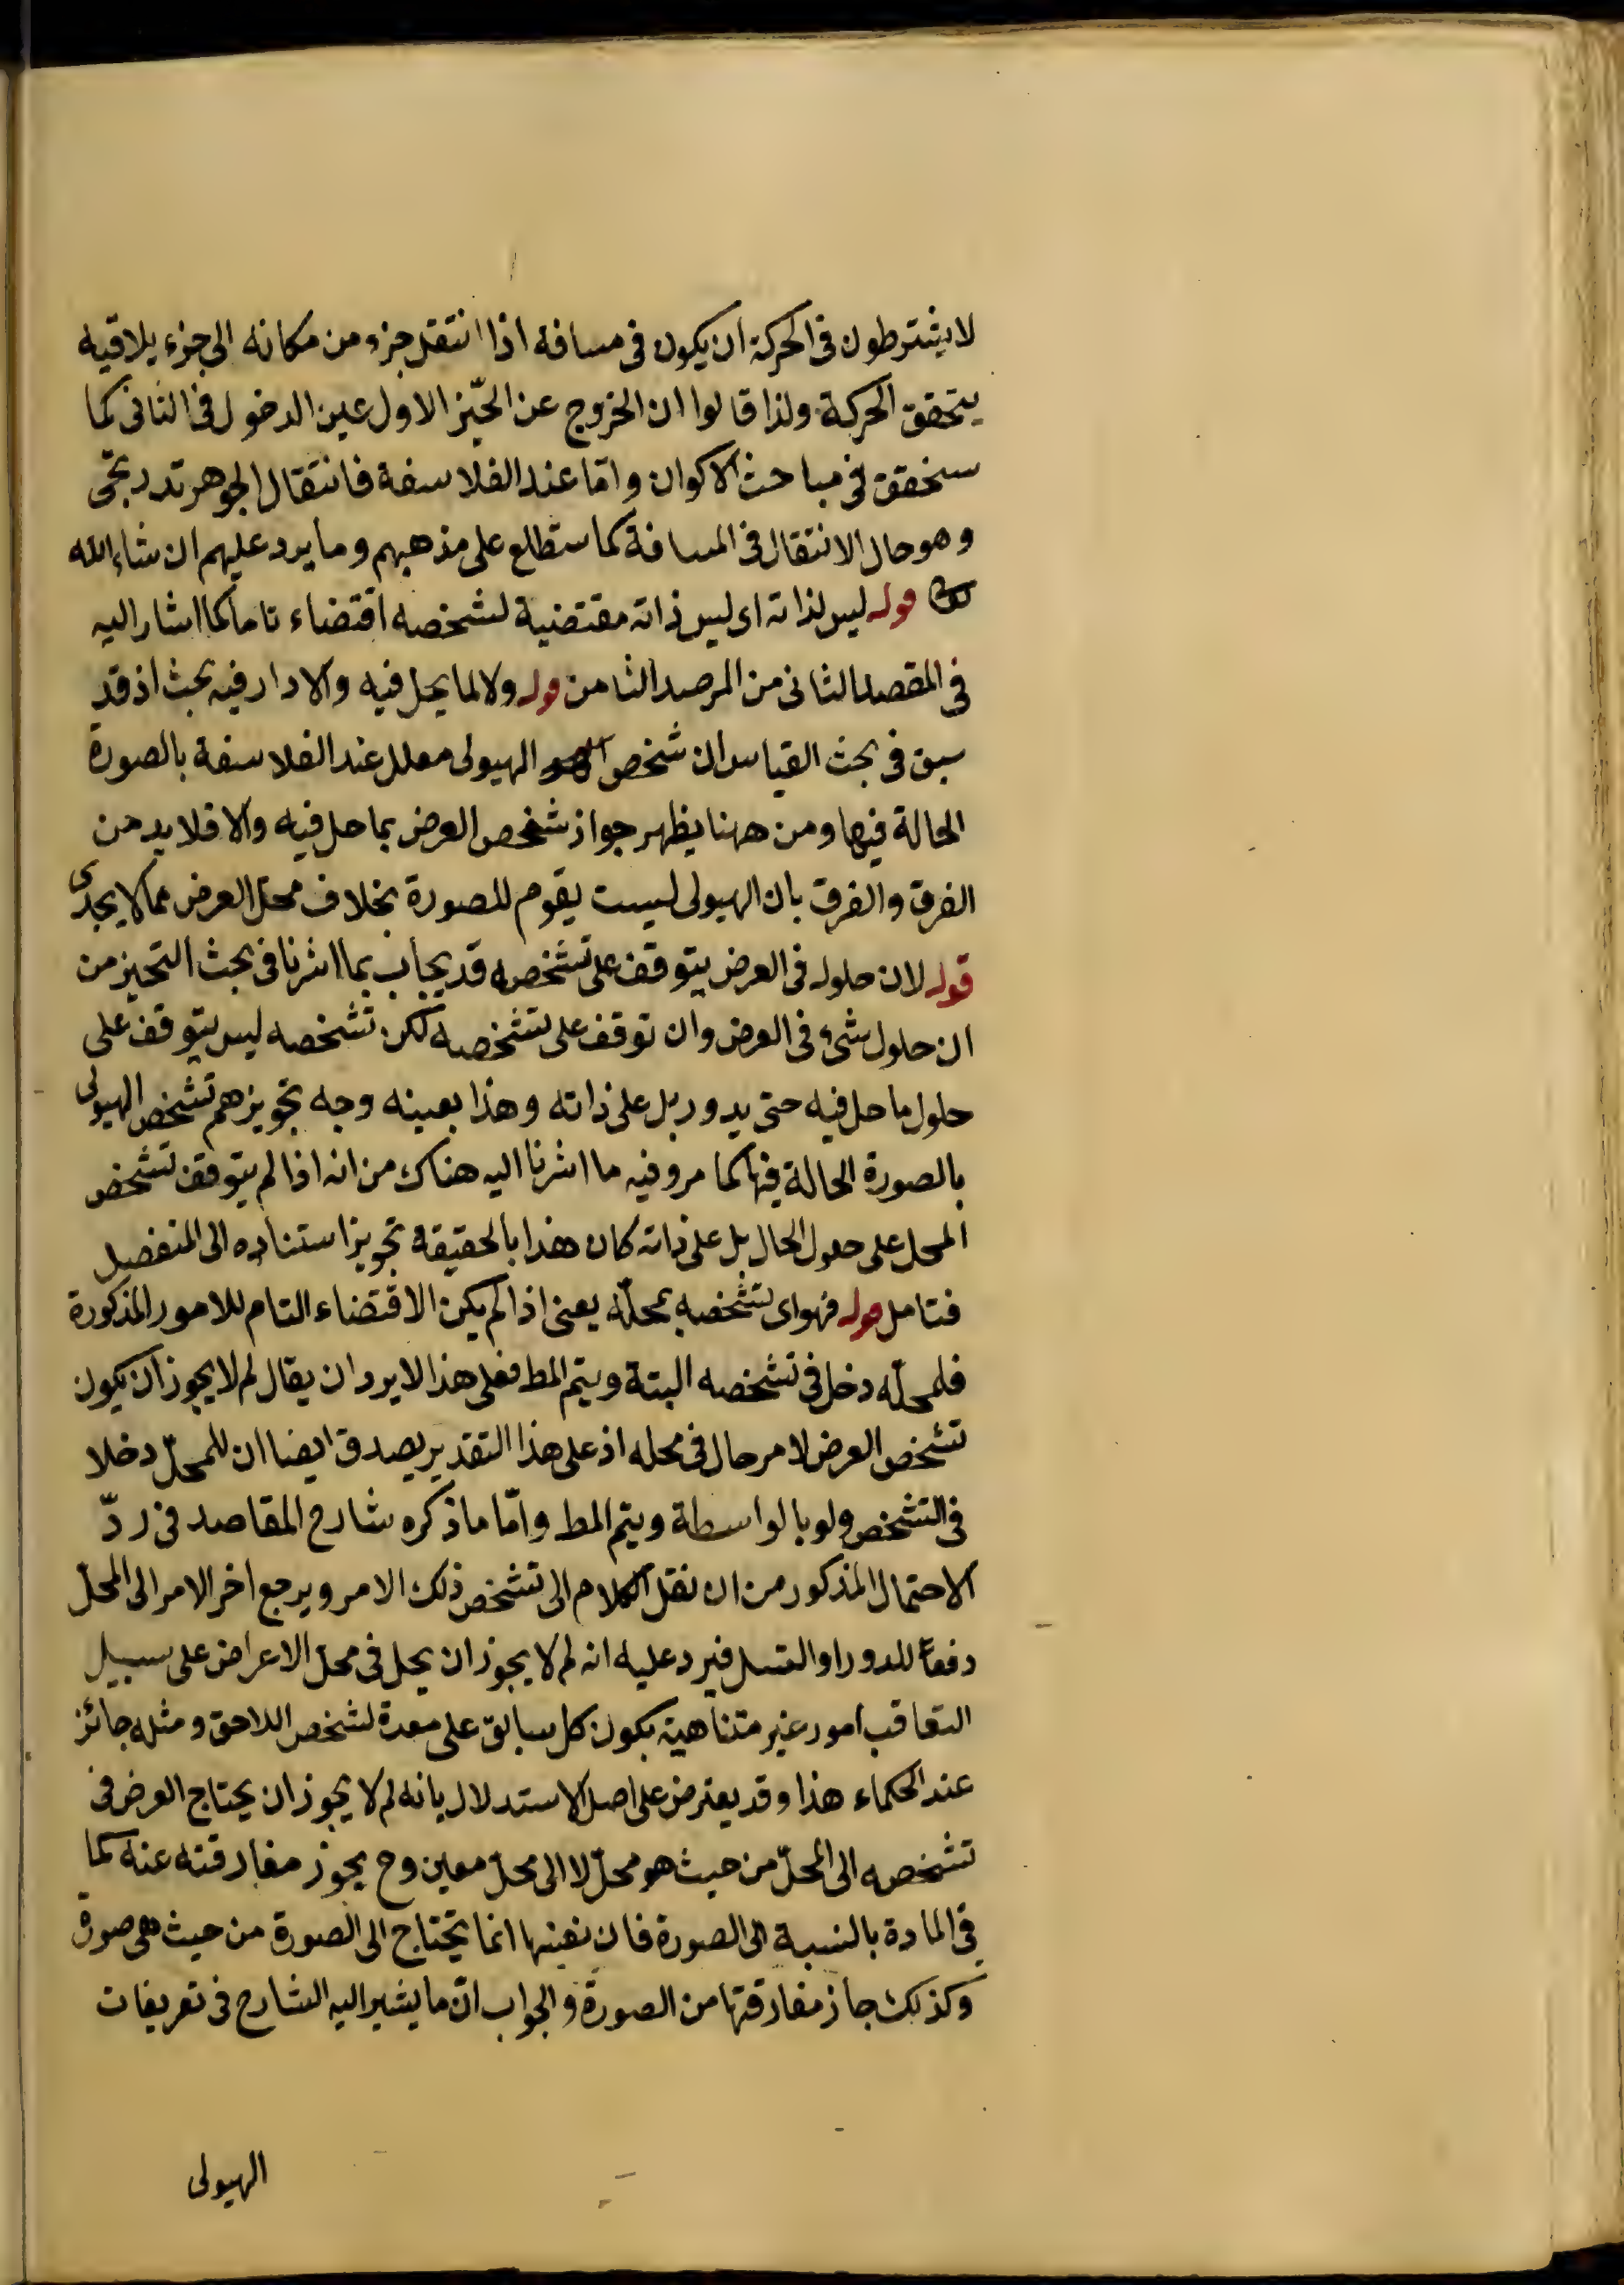 لا يشترطون فى الحركة ان يكون فى مسافة اذا انتقل جزء من مكانه الى جزء يلاقيه
يتحقق الحركة ولذا قالوا ان الخروج عن الحيّز الاول عين الدخول فى الثانى كما
سنحقق فى مباحث الاكوان وامّا عند الفلاسفة فانتقال الجوهر تدريجى
وهو حال الانتقال فى المسافة كما ستطلع على مذهبهم وما يرد عليهم ان شاء الله
قوله ليس لذاته اى ليس ذاته مقتضية لتشخصه اقتضاء تاما كما اشار اليه
فى المقصد الثانى من المرصد الثامن قوله ولا لما يحل فيه والا دار فيه بحث اذ قد
سبق فى بحث القياس ان تشخص الهيولى معلل عند الفلاسفة بالصورة
الحالة فيها ومن ههنا يظهر جواز تشخص العرض بما حل فيه والا فلا بد من
الفرق والفرق بان الهيولى ليست يقوم للصورة بخلاف محل العرض مما لا يجدى
قوله لان حلوله فى العرض يتوقف على تشخصه قد يجاب بما اشرنا فى بحث التحيز من
ان حلول شىء فى العرض وان توقف على تشخصه لكن تشخصه ليس يتوقف على
حلول ما حل فيه حتى يدور بل على ذاته وهذا بعينه وجه تجويزهم تشخص الهيولى
بالصورة الحالة فيها كما مر وفيه ما اشرنا اليه هناك من انه اذا لم يتوقف تشخص
المحل على حلول الحال بل على ذاته كان هذا بالحقيقة تجويز استناده الى المنفصل
فتامل قوله فهو اى تشخصه بمحلّه يعنى اذا لم يكن الاقتضاء التام للامور المذكورة
فلمحلّه دخل فى تشخصه البتة ويتم المط فعلى هذا لا يرد ان يقال لم لا يجوز ان يكون
تشخص العرض لامر حال فى محله اذ على هذا التقدير يصدق ايضا ان للمحلّ دخلا
فى التشخص ولو بالواسطة ويتم المط وامّا ما ذكره شارح المقاصد فى ردّ
الاحتمال المذكور من ان نقل الكلام الى تشخص ذلك الامر ويرجع اخر الامر الى المحلّ
دفعاً للدور او التسل فيرد عليه انه لم لا يجوز ان يحل فى محلّ الاعراض على سبيل
التعاقب امور غير متناهية بكون كل سابق على معدة لتشخص اللاحق ومثله جائز
عند الحكماء هذا وقد يعترض على اصل الاستدلال بانه لم لا يجوز ان يحتاج العرض فى
تشخصه الى المحلّ من حيث هو محلّ لا الى محلّ معين وح يجوز مفارقته عنه كما
فى المادة بالنسبة الى الصورة فان نفيها انما يحتاج الى الصورة من حيث هى صورة
وكذلك جاز مفارقتها من الصورة والجواب انّ ما يشير اليه الشارح فى تعريفات
الهيولى